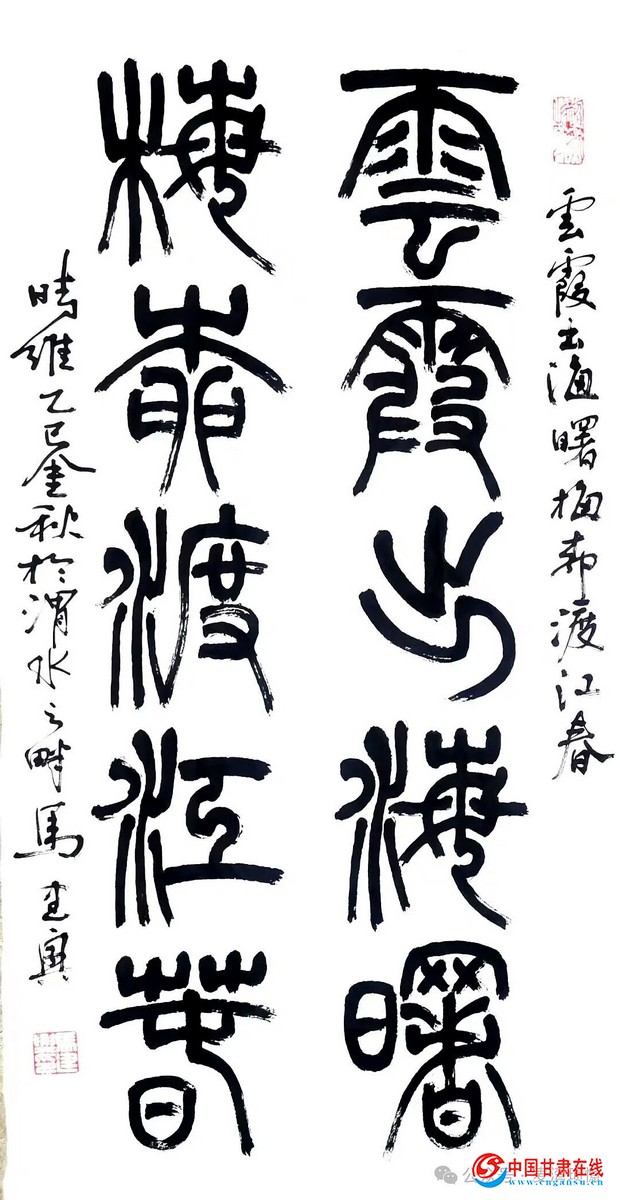 雲霞出海曙梅柳渡江春
雲霞出海曙
梅柳渡江春
時維乙巳金秋於渭水之畔馬建興
公众号
中国甘肃在线
www.cngansu.cn